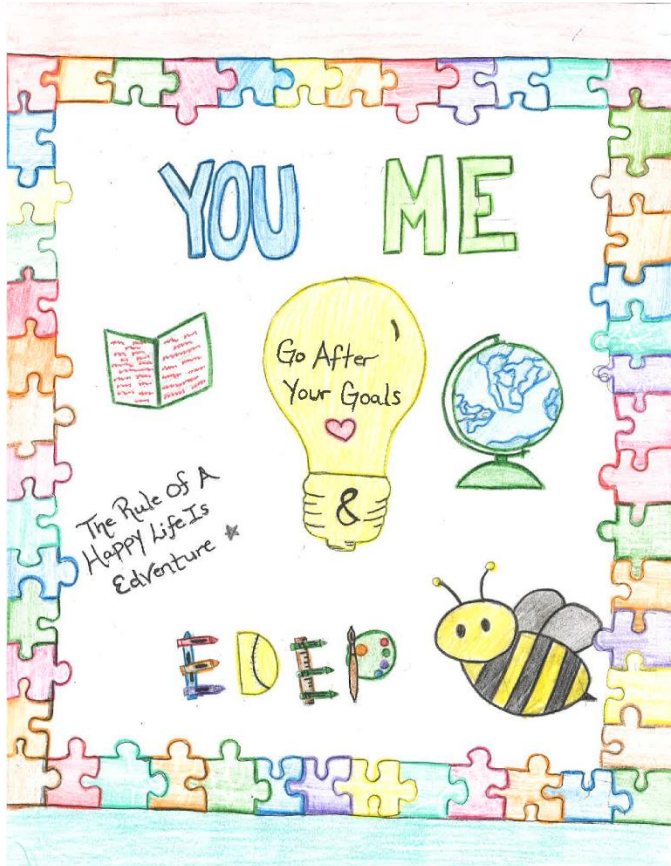 YOU ME
Go After
Your Goals
&
The Rule Of A
Happy Life Is
Edventure
EDEP